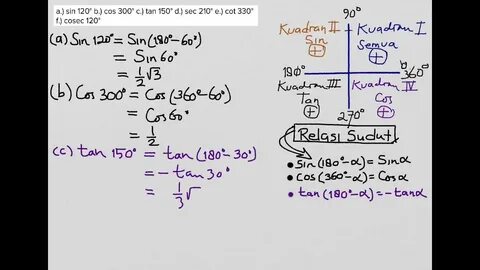 a.) sin 120° b.) cos 300° c.) tan 150° d.) sec 210° e.) cot 330°
f.) cosec 120°
(a) Sin 120° = Sin(180°-60°)
= Sin 60°
= 1/2 √3
(b) Cos 300° = Cos(360°-60°)
= Cos 60°
= 1/2
(c) tan 150° = tan(180°-30°)
= - tan 30°
= 1/3 √
90°
Kuadran II
Sin
+
Kuadran I
Semua
+
180°
0°
360°
Kuadran III
Tan
+
Kuadran IV
Cos
+
270°
Relasi Sudut
• Sin(180°-α) = Sin α
• Cos(360°-α) = Cos α
• tan(180°-α) = -tan α